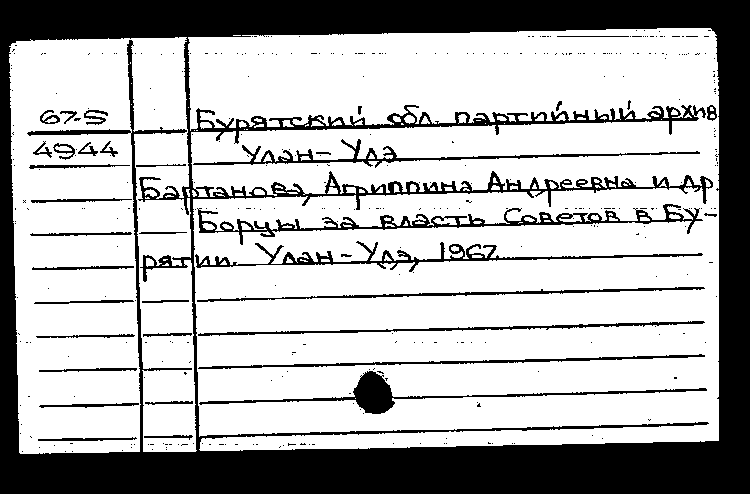 67-5 Бурятский обл. партийный архив
4944 Улан-Удэ
Бартанова, Агриппина Андреевна и др.
Борцы за власть Советов в Бу-
рятии. Улан-Удэ, 1967.